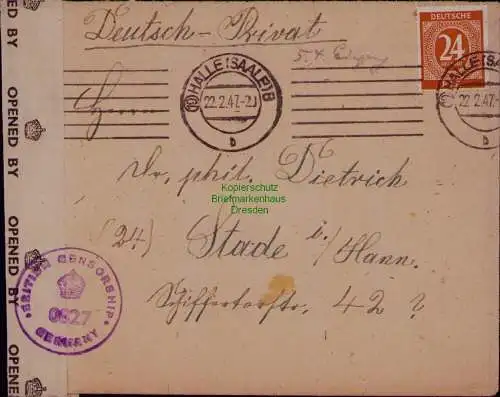 OPENED BY
OPENED BY
OPENED BY
OPENED BY
OPENE
Deutsch-Privat
DEUTSCHE
24
HALLE (SAALE) B
22.2.47.-20
b
HALLE (SAALE)
22.2.47.
b
Herrn
Dr. phil. Dietrich
Kopierschutz
Briefmarkenhaus
Dresden
(24) Stade i./Hann.
42 ?
BRITISH CENSORSHIP
GERMANY